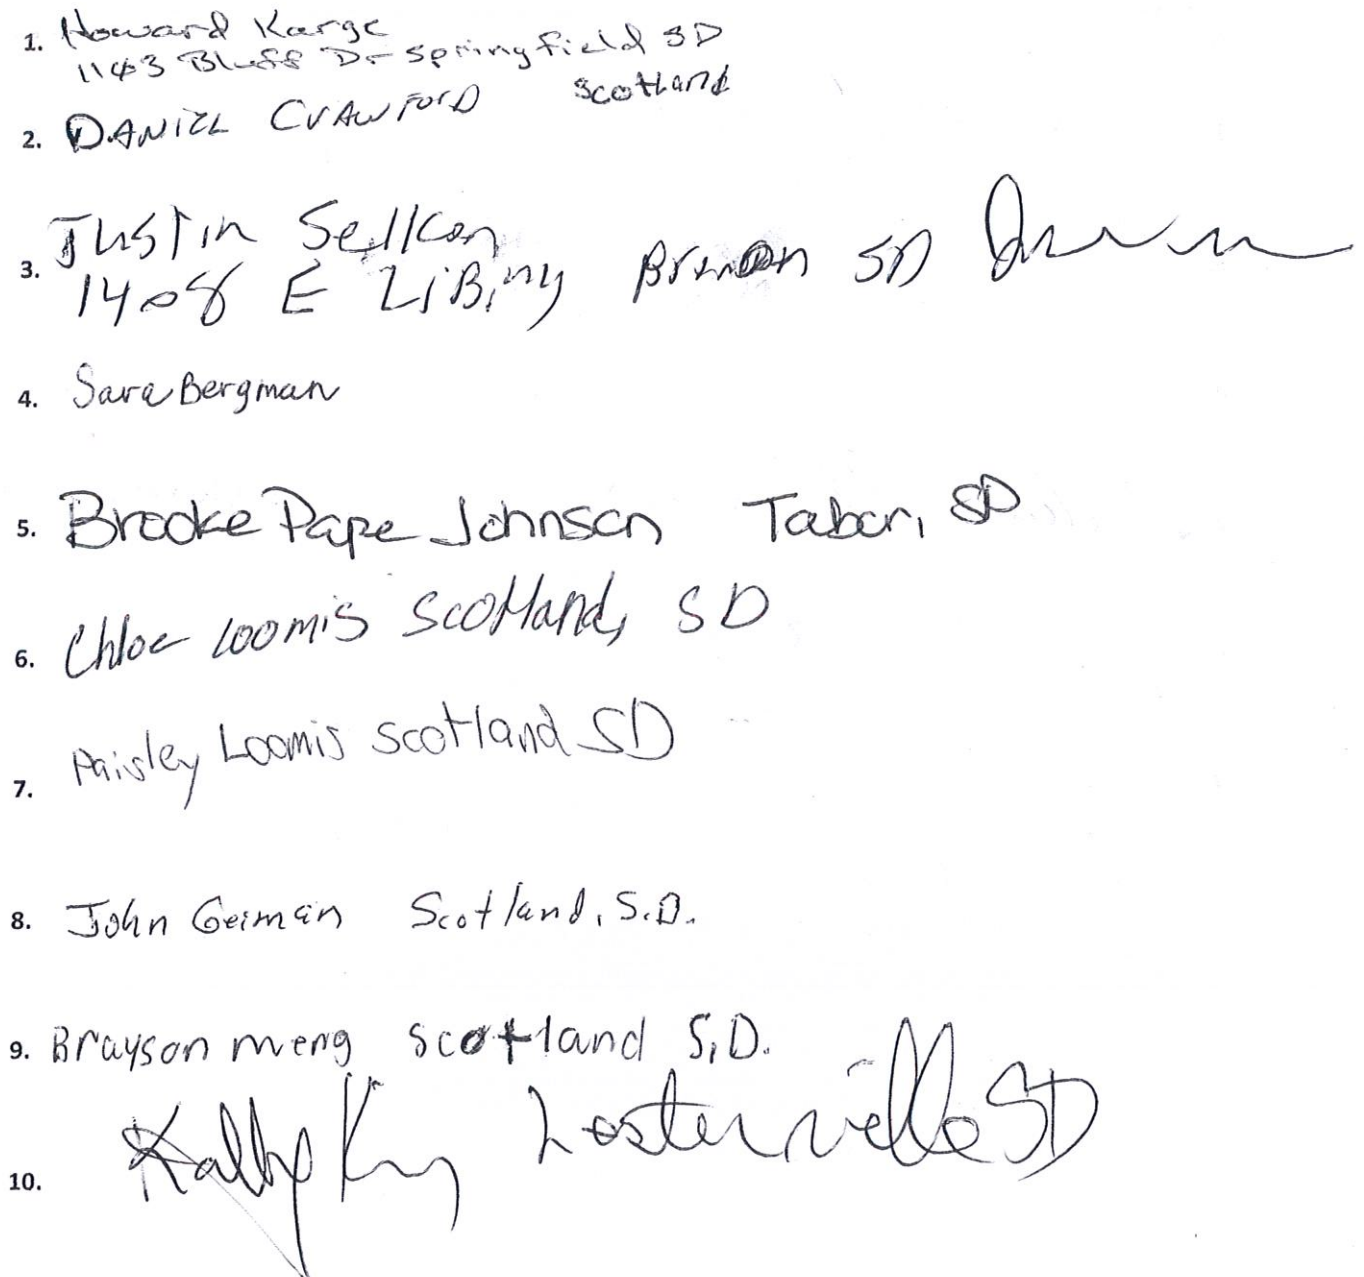 1. Howard Karge
1143 Bluff Dr Springfield SD
2. DANIEL CRAWFORD Scotland
3. Justin Sellkon
1408 E SD
4. Sara Bergman
5. Brooke Pape Johnson Tabor, SD
6. Chloe Loomis Scotland, SD
7. Paisley Loomis Scotland SD
8. John Geiman Scotland, S.D.
9. Brayson meng Scotland S.D.
10. Lesterville SD